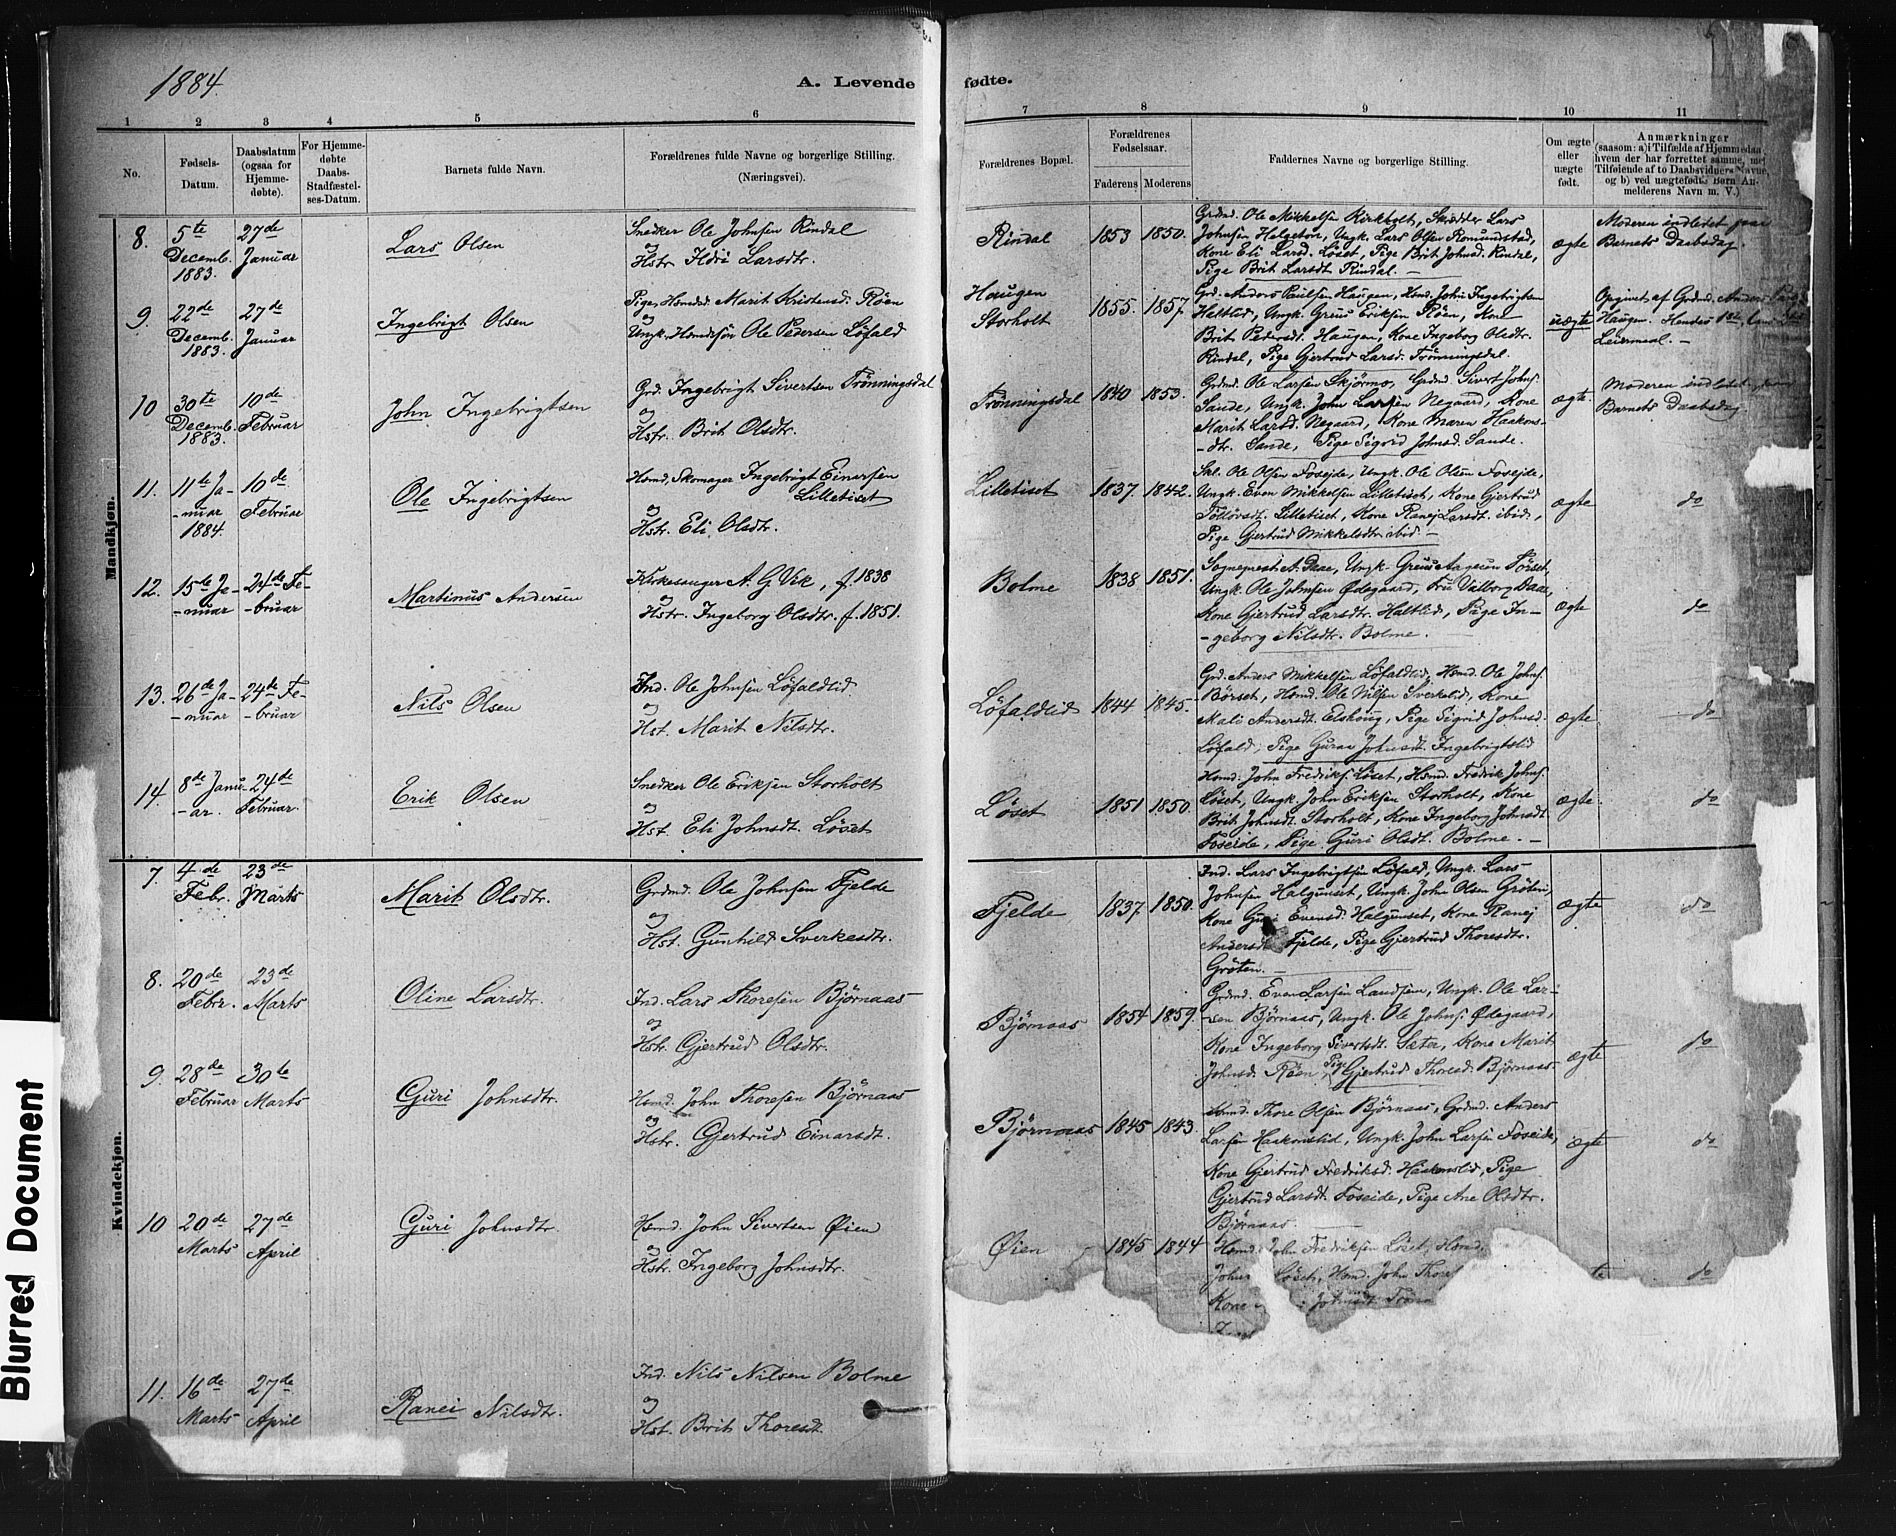 1884.
A. Levende
fødte.
1 2 3 4 5 6
7 8 9 10 11
No.
Fødsels-
Datum.
Daabsdatum
(ogsaa for
Hjemme-
døbte).
For Hjemme-
døbte
Daabs-
Stadfæstel-
ses-Datum.
Barnets fulde Navn.
Forældrenes fulde Navne og borgerlige Stilling.
(Næringsvei).
Forældrenes Bopæl.
Forældrenes
Fødselsaar.
Faderens Moderens
Faddernes Navne og borgerlige Stilling.
Om ægte
eller
uægte
født.
Anmærkninger
(saasom: a) i Tilfælde af Hjemmedaa
hvem der har forrettet samme, me
Tilføiende af to Daabsvidners Navne,
og b) ved uægtefødte Børn An-
melderens Navn m. V.)
Mandkjøn.
8.
5te
Decemb.
1883.
27de
Januar
Lars Olsen
Snedker Ole Johnsen Rindal
og
Hstr. Larsdtr.
Rindal
1853 1850.
Grdmd. Ole Mikkelsen Kirkholt, Skrædder Lars
Johnsen Helgeton, Ungk. Lars Olsen Romundstad,
Kone Eli Larsd. Løset, Pige Brit Johnsd. Rindal,
Pige Brit Larsdt. Rindal. –
ægte
Moderen indledet paa
Barnets Daabsdag.
9.
22de
Decemb.
1883.
27de
Januar
Ingebrigt Olsen
Pige, Marit Kristensd. Røen
og
Ungk. Ole Pedersen Løfald
Haugen
Storholt
1855. 1857.
Grd. Anders Paulsen Haugen, Hsmd. John Ingebrigtsen
Haltlid, Ungk. Eriksen Røen, Kone
Brit Pedersdt. Haugen, Kone Ingeborg Olsdtr.
Rindal, Pige Gjertrud Larsd. Trønningsdal.
uægte
Opgivet af Grdmd. Anders
Haugen. Hendes 1ste,
Leiermaal. –
10
30te
Decemb.
1883.
10de
Februar
John Ingebrigtsen
Grd. Ingebrigt Sivertsen Trønningsdal
og
Hstr. Brit Olsdtr.
Trønningsdal
1840 1853.
Grdmd. Ole Larsen Skjørmo, Grdmd. Sivert Johns.
Sande, Ungk. John Larsen Negaard, Kone
Marit Larsd. Negaard, Kone Maren Haakons-
-dtr. Sande, Pige Sigrid Johnsd. Sande.
ægte.
Moderen indledet paa
Barnets Daabsdag
11.
11te Ja-
-nuar
1884.
10de
Februar
Ole Ingebrigtsen
Hsmd, Skomager Ingebrigt Einarsen
Lilletiset
og
Hstr. Eli Olsdtr.
Lilletiset
1837. 1842.
Ole Olsen Foseide, Ungk. Ole Olsen Foseide,
Ungk. Even Mikkelsen Lilletiset, Kone Gjertrud
Lilletiset, Kone Ranej Larsdt. ibid,
Pige Gjertrud Mikkelsdtr. ibid. –
ægte
do
12.
15te Ja-
-nuar
24de Fe-
-bruar
Martinus Andersen
Kirkesanger A. G Vik, f. 1838
og
Hstr. Ingeborg Olsdtr. f. 1851.
Bolme
1838 1851.
Sognepræst A. Daae, Ungk. Aagesen Førset,
Ungk. Ole Johnsen Ødegaard, Fru Valborg Daae,
Kone Gjertrud Larsdtr. Haltlid, Pige In-
-geborg Nilsdtr. Bolme.
ægte
do
13.
26de Ja-
-nuar
24de Fe-
-bruar
Nils Olsen
Ind. Ole Johnsen Løfaldlid
og
Hst. Marit Nilsdtr.
Løfaldlid
1844 1845.
Grd. Anders Mikkelsen Løfaldlid, Hsmd. Ole Johns.
Børset, Hsmd. Ole Nilsen Sverkelid, Kone
Mali Andersdt. Elshoug, Pige Sigrid Johnsd.
Løfald, Pige Guraa Johnsdt. Ingebrigtslid
ægte
do
14.
8de Janu-
-ar.
24de
Februar.
Erik Olsen
Snedker Ole Eriksen Storholt
og
Hst. Eli Johnsdt. Løset
Løset
1851 1850.
Hsmd. John Fredriks. Løset, Hsmd. Fredrik Johns.
Løset, Ungk. John Eriksen Storholt, Kone
Brit Johnsdt. Storholt, Kone Ingeborg Johnsdt.
Foseide, Pige Guri Olsdt. Bolme. –
ægte
do
Kvindekjøn.
7.
4de
Febr.
23de
Marts
Marit Olsdtr.
Grdmd. Ole Johnsen Fjelde
og
Hst. Gunhild Sverkesdtr.
Fjelde
1837. 1850.
Ind. Lars Ingebrigtsen Løfald, Ungk. Lars
Johnsen Halgunset, Ungk. John Olsen Grøten,
Kone Evensd. Halgunset, Kone Ranej
Andersd. Fjelde, Pige Gjertrud Thoresdtr.
Grøten. –
ægte
do
8.
20de
Febr.
23de
Marts
Oline Larsdtr.
Ind. Lars Thoresen Bjørnaas
og
Hstr. Gjertrud Olsdtr.
Bjørnaas
1854 1859.
Grdmd. Even Larsen Landsem, Ungk. Ole Lar-
-sen Bjørnaas, Ungk. Ole Johns. Ødegaard,
Kone Ingeborg Sivertsdt. Sæter, Kone Marit
Johnsd. Røen, Pige Gjertrud Thoresd. Bjørnaas
ægte
do
9.
28de
Februar
30te
Marts
Guri Johnsdtr.
Hsmd. John Thoresen Bjørnaas
og
Hstr. Gjertrud Einarsdt.
Bjørnaas
1845 1843.
Hsmd. Thore Olsen Bjørnaas, Grdmd. Anders
Larsen Haakonslid, Ungk. John Larsen Foseide,
Kone Gjertrud Fredriksd. Haakonslid, Pige
Gjertrud Larsdt. Foseide, Pige Ane Olsdtr.
Bjørnaas.
ægte
do
10
20de
Marts
27de
April
Guri Johnsdtr.
Hsmd. John Sivertsen Øien
og
Hstr. Ingeborg Johnsdtr.
Øien
1845 1844
Hsmd. John Fredriksen Løset, Hsmd.
Johns Løset, Hsmd. John Thore
Kone Johnsdt.
te
do
11.
16de
Marts
27de
April
Ranei Nilsdtr.
Ind. Nils Nilsen Bolme
og
Hst. Brit Thoresdt.
Blurred Document